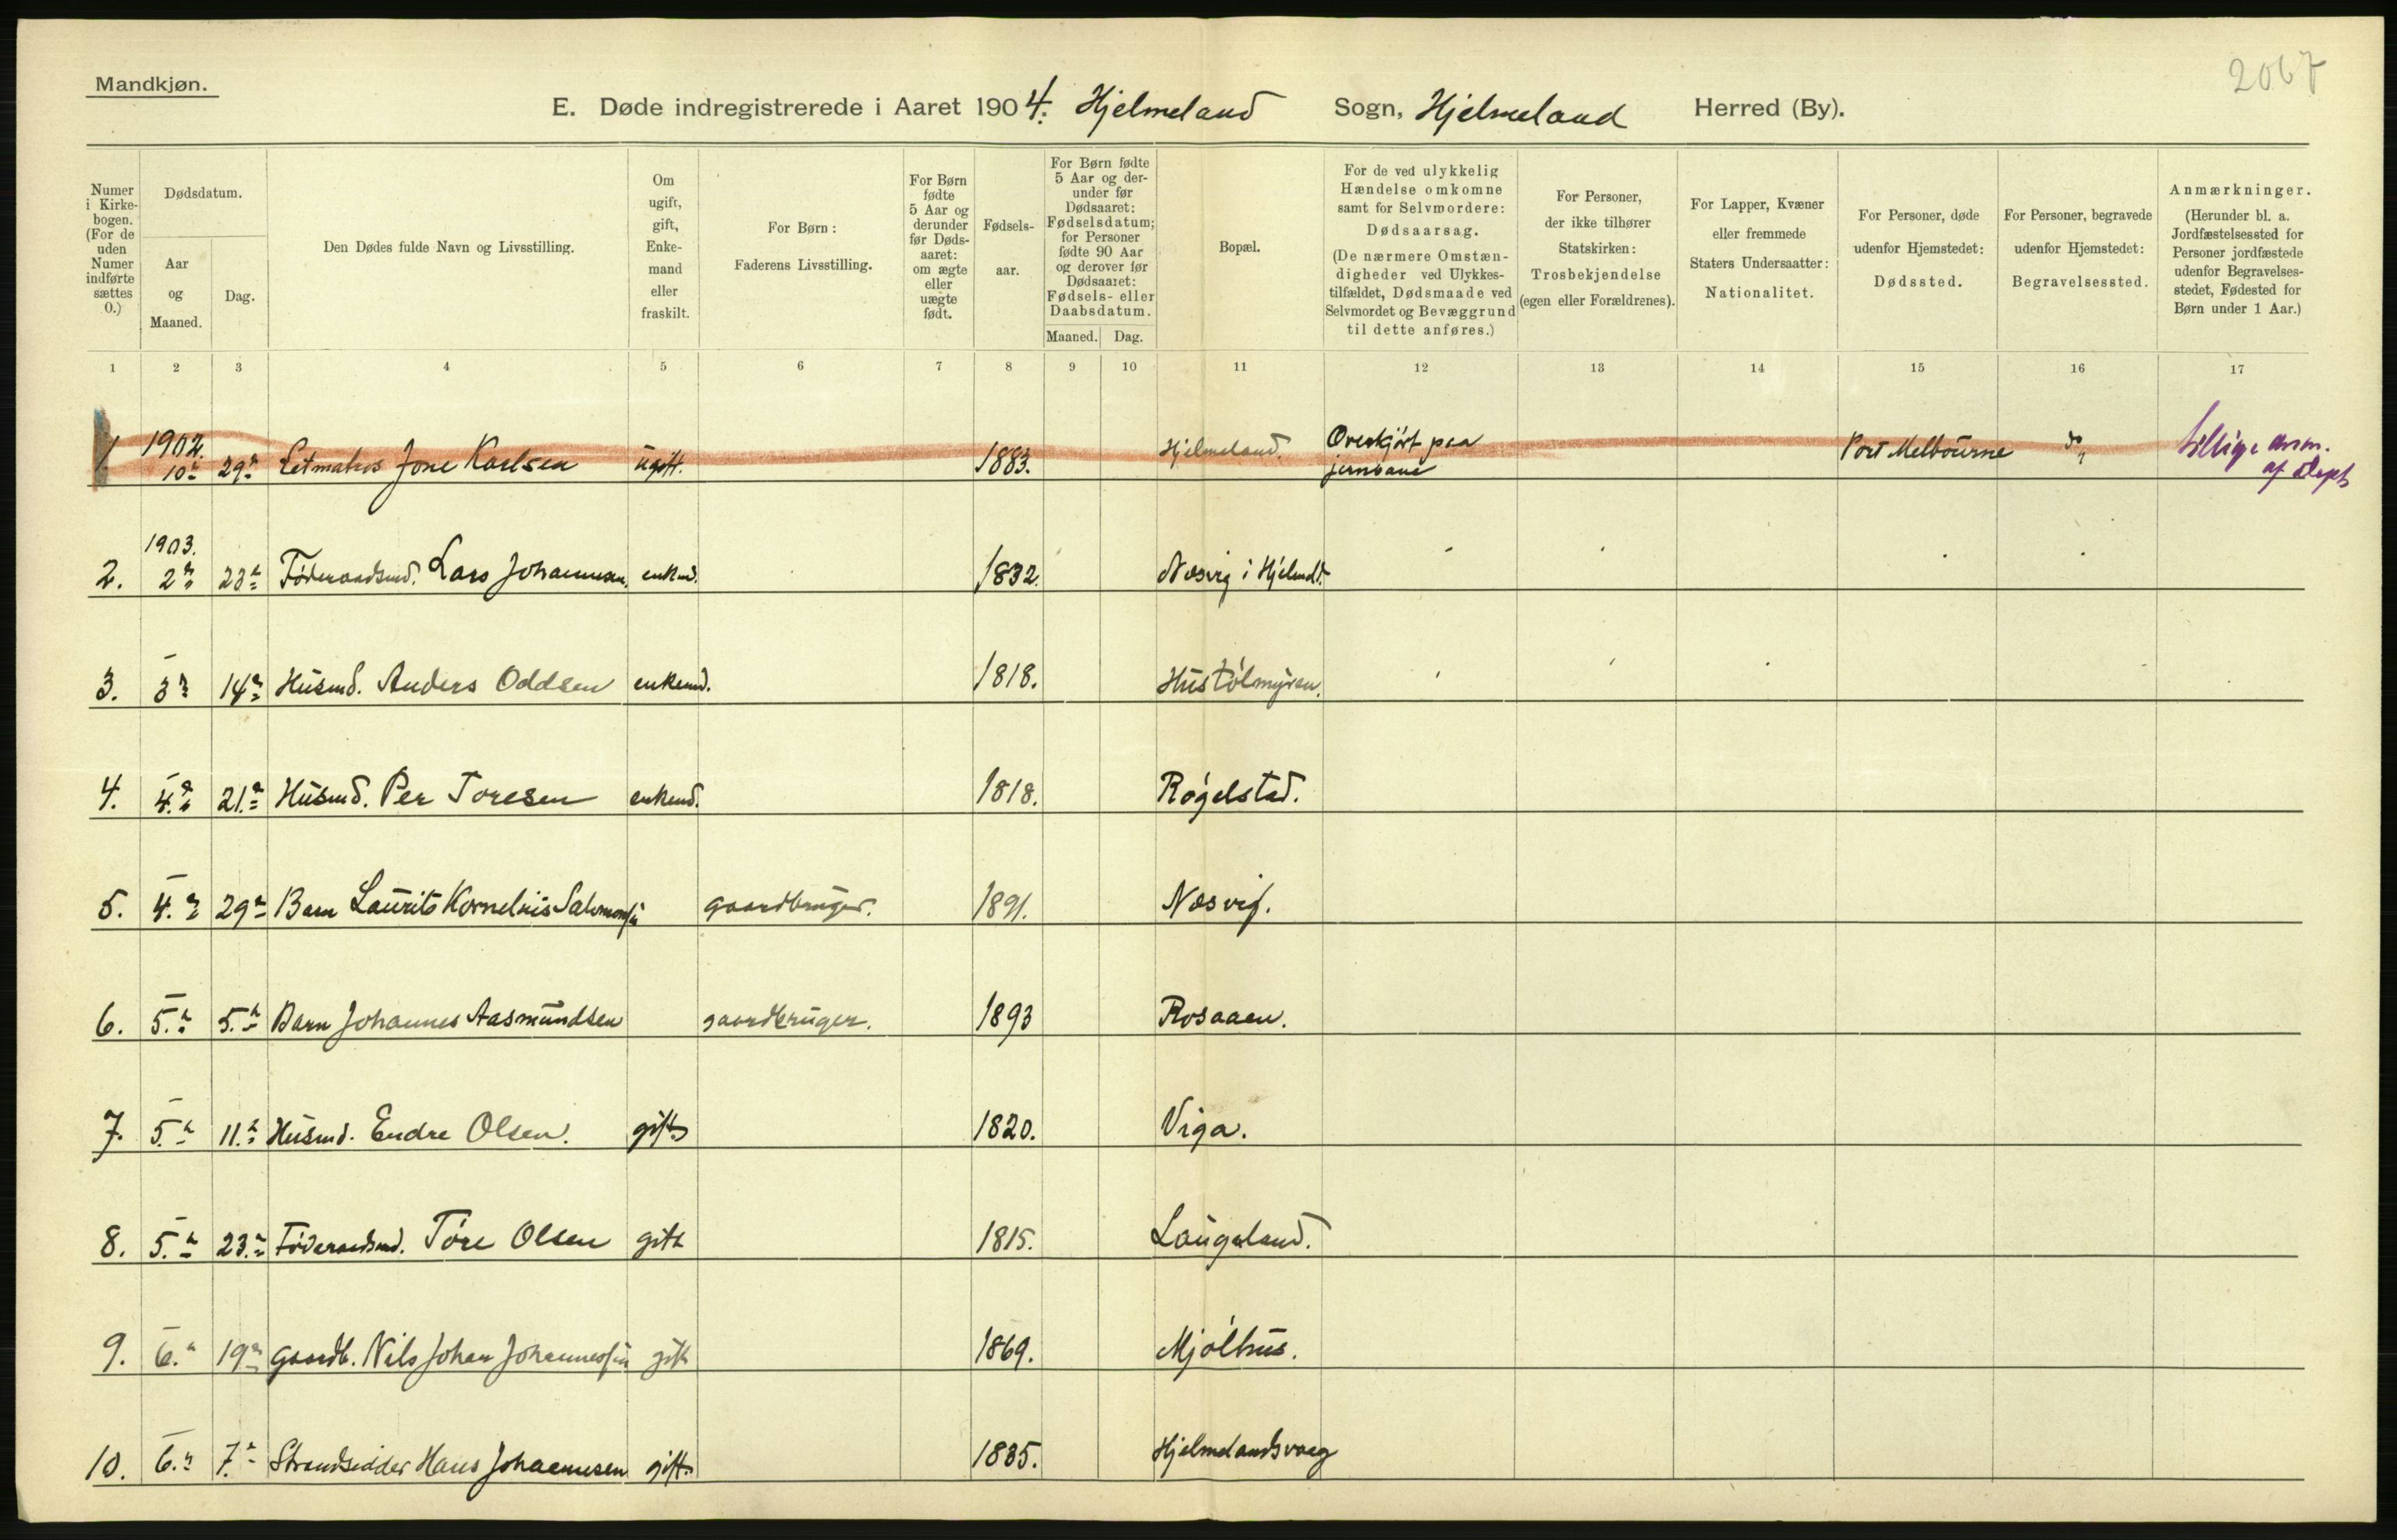 2067
Mandkjøn.
E. Døde indregistrerede i Aaret 1904. Hjelmeland Sogn, Hjelmeland Herred (By).
Numer i Kirke-bogen. (For de uden Numer indførte sættes 0.)
Dødsdatum.
Aar og Maaned.
Dag.
Den Dødes fulde Navn og Livsstilling.
Om ugift, gift, Enke-mand eller fraskilt.
For Børn: Faderens Livsstilling.
For Børn fødte 5 Aar og derunder før Døds-aaret: om ægte eller uægte født.
Fødsels-aar.
For Børn fødte 5 Aar og der-under før Dødsaaret: Fødselsdatum; for Personer fødte 90 Aar og derover før Dødsaaret: Fødsels- eller Daabsdatum.
Maaned. Dag.
Bopæl.
For de ved ulykkelig Hændelse omkomne samt for Selvmordere: Dødsaarsag. (De nærmere Omstæn-digheder ved Ulykkes-tilfældet, Dødsmaade ved Selvmordet og Bevæggrund til dette anføres.)
For Personer, der ikke tilhører Statskirken: Trosbekjendelse (egen eller Forældrenes).
For Lapper, Kvæner eller fremmede Staters Undersaatter: Nationalitet.
For Personer, døde udenfor Hjemstedet: Dødssted.
For Personer, begravede udenfor Hjemstedet: Begravelsessted.
Anmærkninger. (Herunder bl. a. Jordfæstelsessted for Personer jordfæstede udenfor Begravelses-stedet, Fødested for Børn under 1 Aar.)
1 2 3 4 5 6 7 8 9 10 11 12 13 14 15 16 17
1. 1902. 10 29 Letmatros Jone Karlsen ugift. 1883. Hjelmeland. Overkjört paa jernbane Port Melbourne do
2. 1903. 2 23 Föderaadsmd. Lars Johannesen. enkmd. 1832. Næsvig i Hjelmeld.
3. – 3 14 Husmd. Anders Oddsen enkemd. 1818. Hustölmyren.
4. – 4. 21. Husmd. Per Toresen enkemd. 1818. Rögelstad.
5. – 4. 29 Barn Laurits Kornelius Salomonsen gaardbruger. 1891. Næsvig.
6. – 5. 5. Barn Johannes Aasmundsen gaardbruger. 1893 Rosaaen.
7. – 5. 11. Husmd. Endre Olsen. gift 1820. Viga.
8. – 5. 23. Föderaadsmd. Töre Olsen gift 1815. Laugaland.
9. – 6. 19 Gaardb. Nils Johan Johannessen gift 1869. Mjölhus.
10. – 6. 7. Strandsidder Hans Johannesen gift 1835. Hjelmelandsvaag